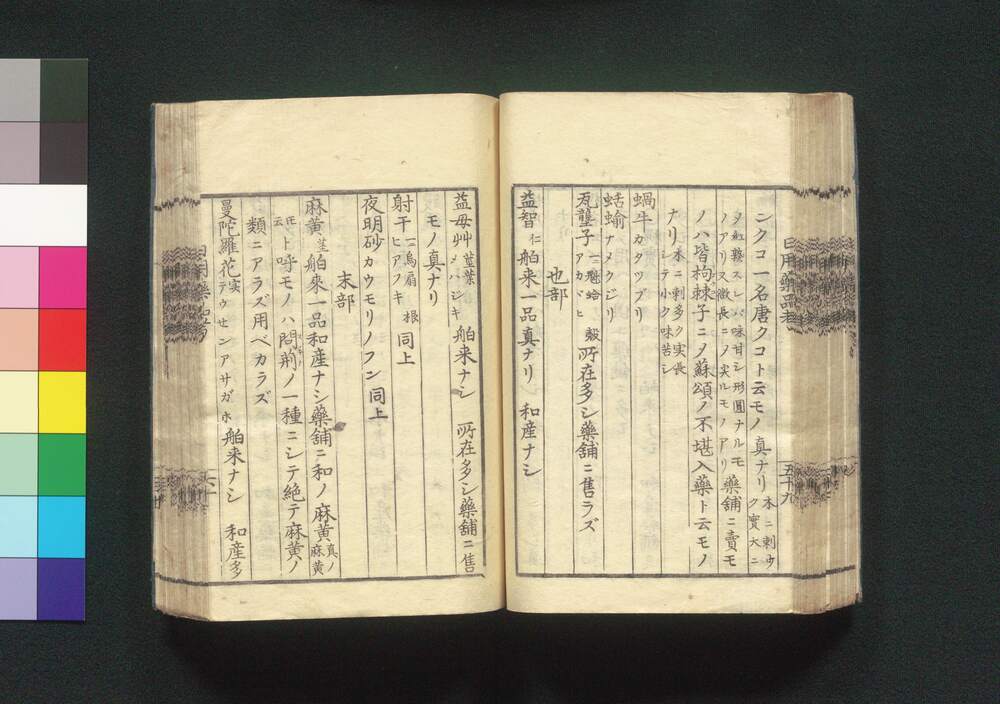 ンクコ一名唐クコト云モノ真ナリ 木ニ刺ク實大ニ
ヲ紅熟スレバ味甘シ形圓ナルモ藥舗ニ賣モ
ノアリス微長ニヲ実ルモノアリ
ノハ皆枸棘子ニヲ蘇頌ノ不堪入藥ト云モノ
ナリ 本ニ刺多ク実長シテ小ク味苦シ
蝸牛 カタツブリ
蛞蝓 ナメクジリ
瓦壟子 一ニ魁蛤 アカヾヒ 殻 所在多シ藥舗ニ售ラズ
也部
益智 仁 舶来一品真ナリ 和産ナシ
日用藥品考
五十九
益毋艸 莖葉 メハジキ 舶来ナシ 所在多シ藥舗ニ售
モノ真ナリ
射干 一烏扇 ヒアフキ 根 同上
夜明砂 カウモリノフン 同上
末部
麻黄 莖 舶來一品和産ナシ藥舗ニ和ノ麻黄 真ノ麻黄
モ云ト呼モノハ問荊ノ一種ニシテ絶テ麻黄ノ
類ニアラズ用ベカラズ
曼陀羅花 実 テウセンアサガホ 舶来ナシ 和産多